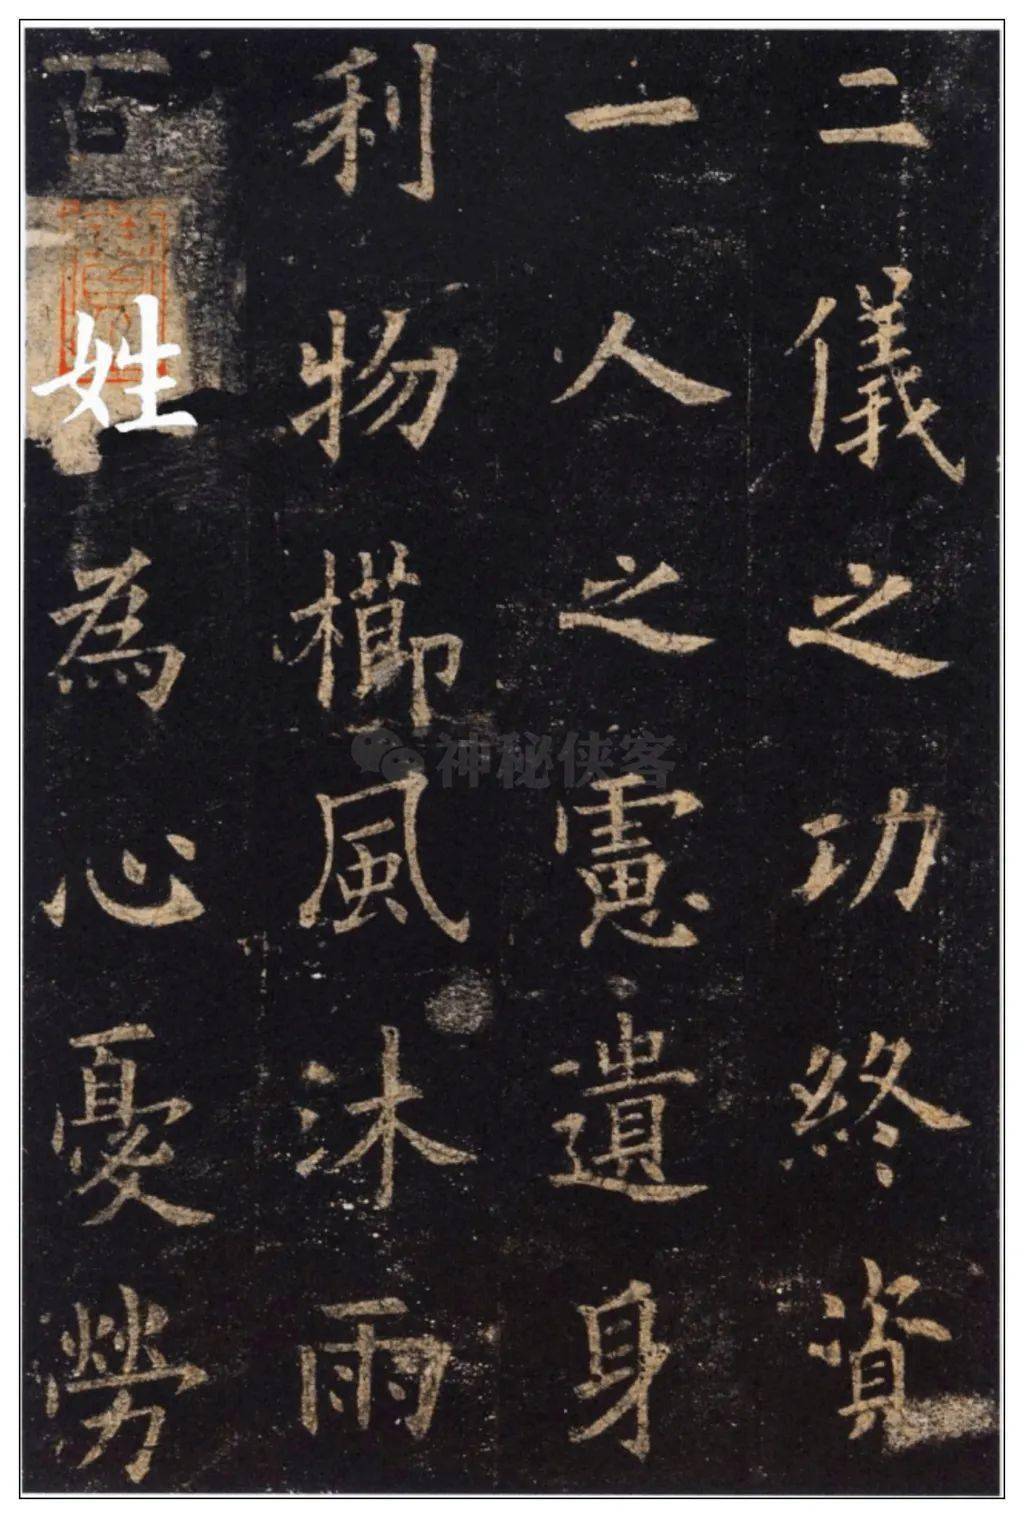 二儀之功終資
一人之慮遺身
利物櫛風沐雨
百姓為心憂勞
神秘侠客